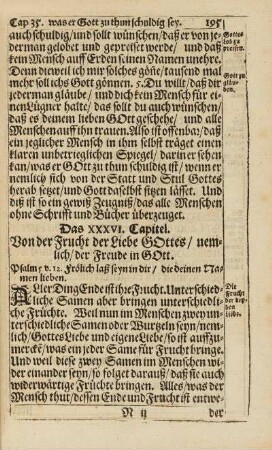 Cap 35. was er Gott zu thun schuldig sey. 195
auch schuldig/ und sollt wünschen/ daß er von je-
derman gelobet und gepreiset werde/ und daß
kein Mensch auff Erden seinen Namen unehre.
Denn dieweil ich mir solches gönne/ tausend mal
mehr soll ichs Gott gönnen. 5. Du willt/ daß dir
jederman glåube/ und dich kein Mensch für ei-
nen Lügner halte/ das sollt du auch wünschen/
daß es deinem lieben GOtt geschehe/ und alle
Menschen auff ihn trauen. Also ist offenbar/ daß
ein jeglicher Mensch in ihm selbst träget einen
klaren unbetrieglichen Spiegel/ dariner sehen
kan/ was er GOtt zu thun schuldig ist/ wenn er
nemlich sich von der Statt und Stul Gottes
herab setzet/ und Gott daselbst sitzen låsset. Und
diß ist so ein gewiß Zeugniß/ das alle Menschen
ohne Schrifft und Bücher überzeuget.
Das XXXVI. Capitel.
Von der Frucht der Liebe GOttes/ nem-
lich/ der Freude in GOtt.
Psalm 5 v. 12. Frölich laß seyn in dir/ die deinen Na-
men lieben.
ALler Ding Ende ist ihre Frucht. Unterschied-
liche Samen aber bringen unterschiedli-
che Früchte. Weil nun im Menschen zwey un-
terschiedliche Samen oder Wurzeln seyn/ nem-
lich/ Gottes Liebe und eigene Liebe/ so ist auffzu-
mercken/ was ein jeder Same für Frucht bringe.
Und weil diese zwey Samen im Menschen wi-
der einander seyn/ so folget darauß/ daß sie auch
widerwärtige Früchte bringen. Alles/ was der
Mensch thut/ dessen Ende und Frucht ist entwe-
N ij der
Gottes
Lob zu
preisen.
Gott zu
glåu-
ben.
Die
Frucht
der
Liebe.